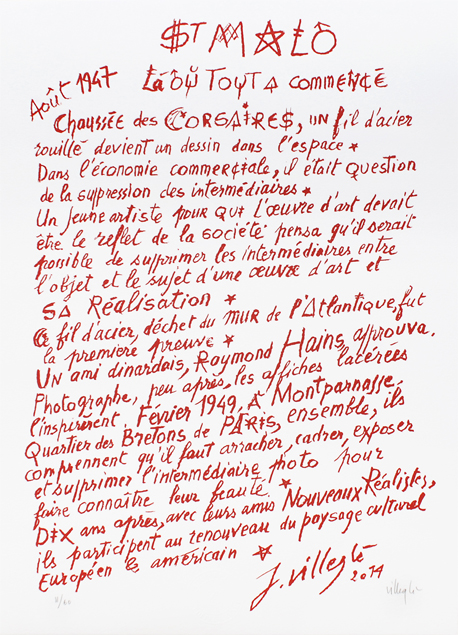 $T MALO
Août 1947 Là OÙ TOUT A COMMENCÉ
Chaussée des CORSAIRES, UN fil d'acier
rouillé devient un dessin dans l'espace *
Dans l'économie commerciale, il était question
de la suppression des intermédiaires *
Un Jeune artiste pour QUI L'œuvre d'art devait
être le reflet de la société pensa qu'il serait
possible de supprimer les intermédiaires entre
l'objet et le sujet d'une œuvre d'art et
SA Réalisation *
Ce fil d'acier, déchet du MUR de l'Atlantique, fut
la première preuve *
UN ami dinardais, Raymond Hains, approuva.
Photographe, peu après, les affiches lacérées
l'inspirèrent. Février 1949, A Montparnasse,
Quartier des Bretons de PARIS, ensemble, ils
comprennent qu'il faut arracher, cadrer, exposer
et supprimer l'intermédiaire photo pour
faire connaître leur beauté *
DIX ans après, avec leurs amis Nouveaux Réalistes,
ils participent au renouveau du paysage culturel
Européen & américain ☆
J. Villeglé
2014